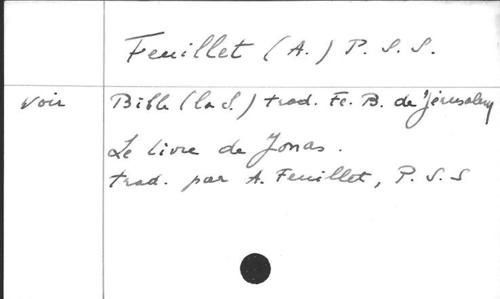 Feuillet (A.) P. S. S.
voir Bible (la S.) trad. Fc. B. de Jérusalem
Le livre de Jonas.
trad. par A. Feuillet, P. S. S